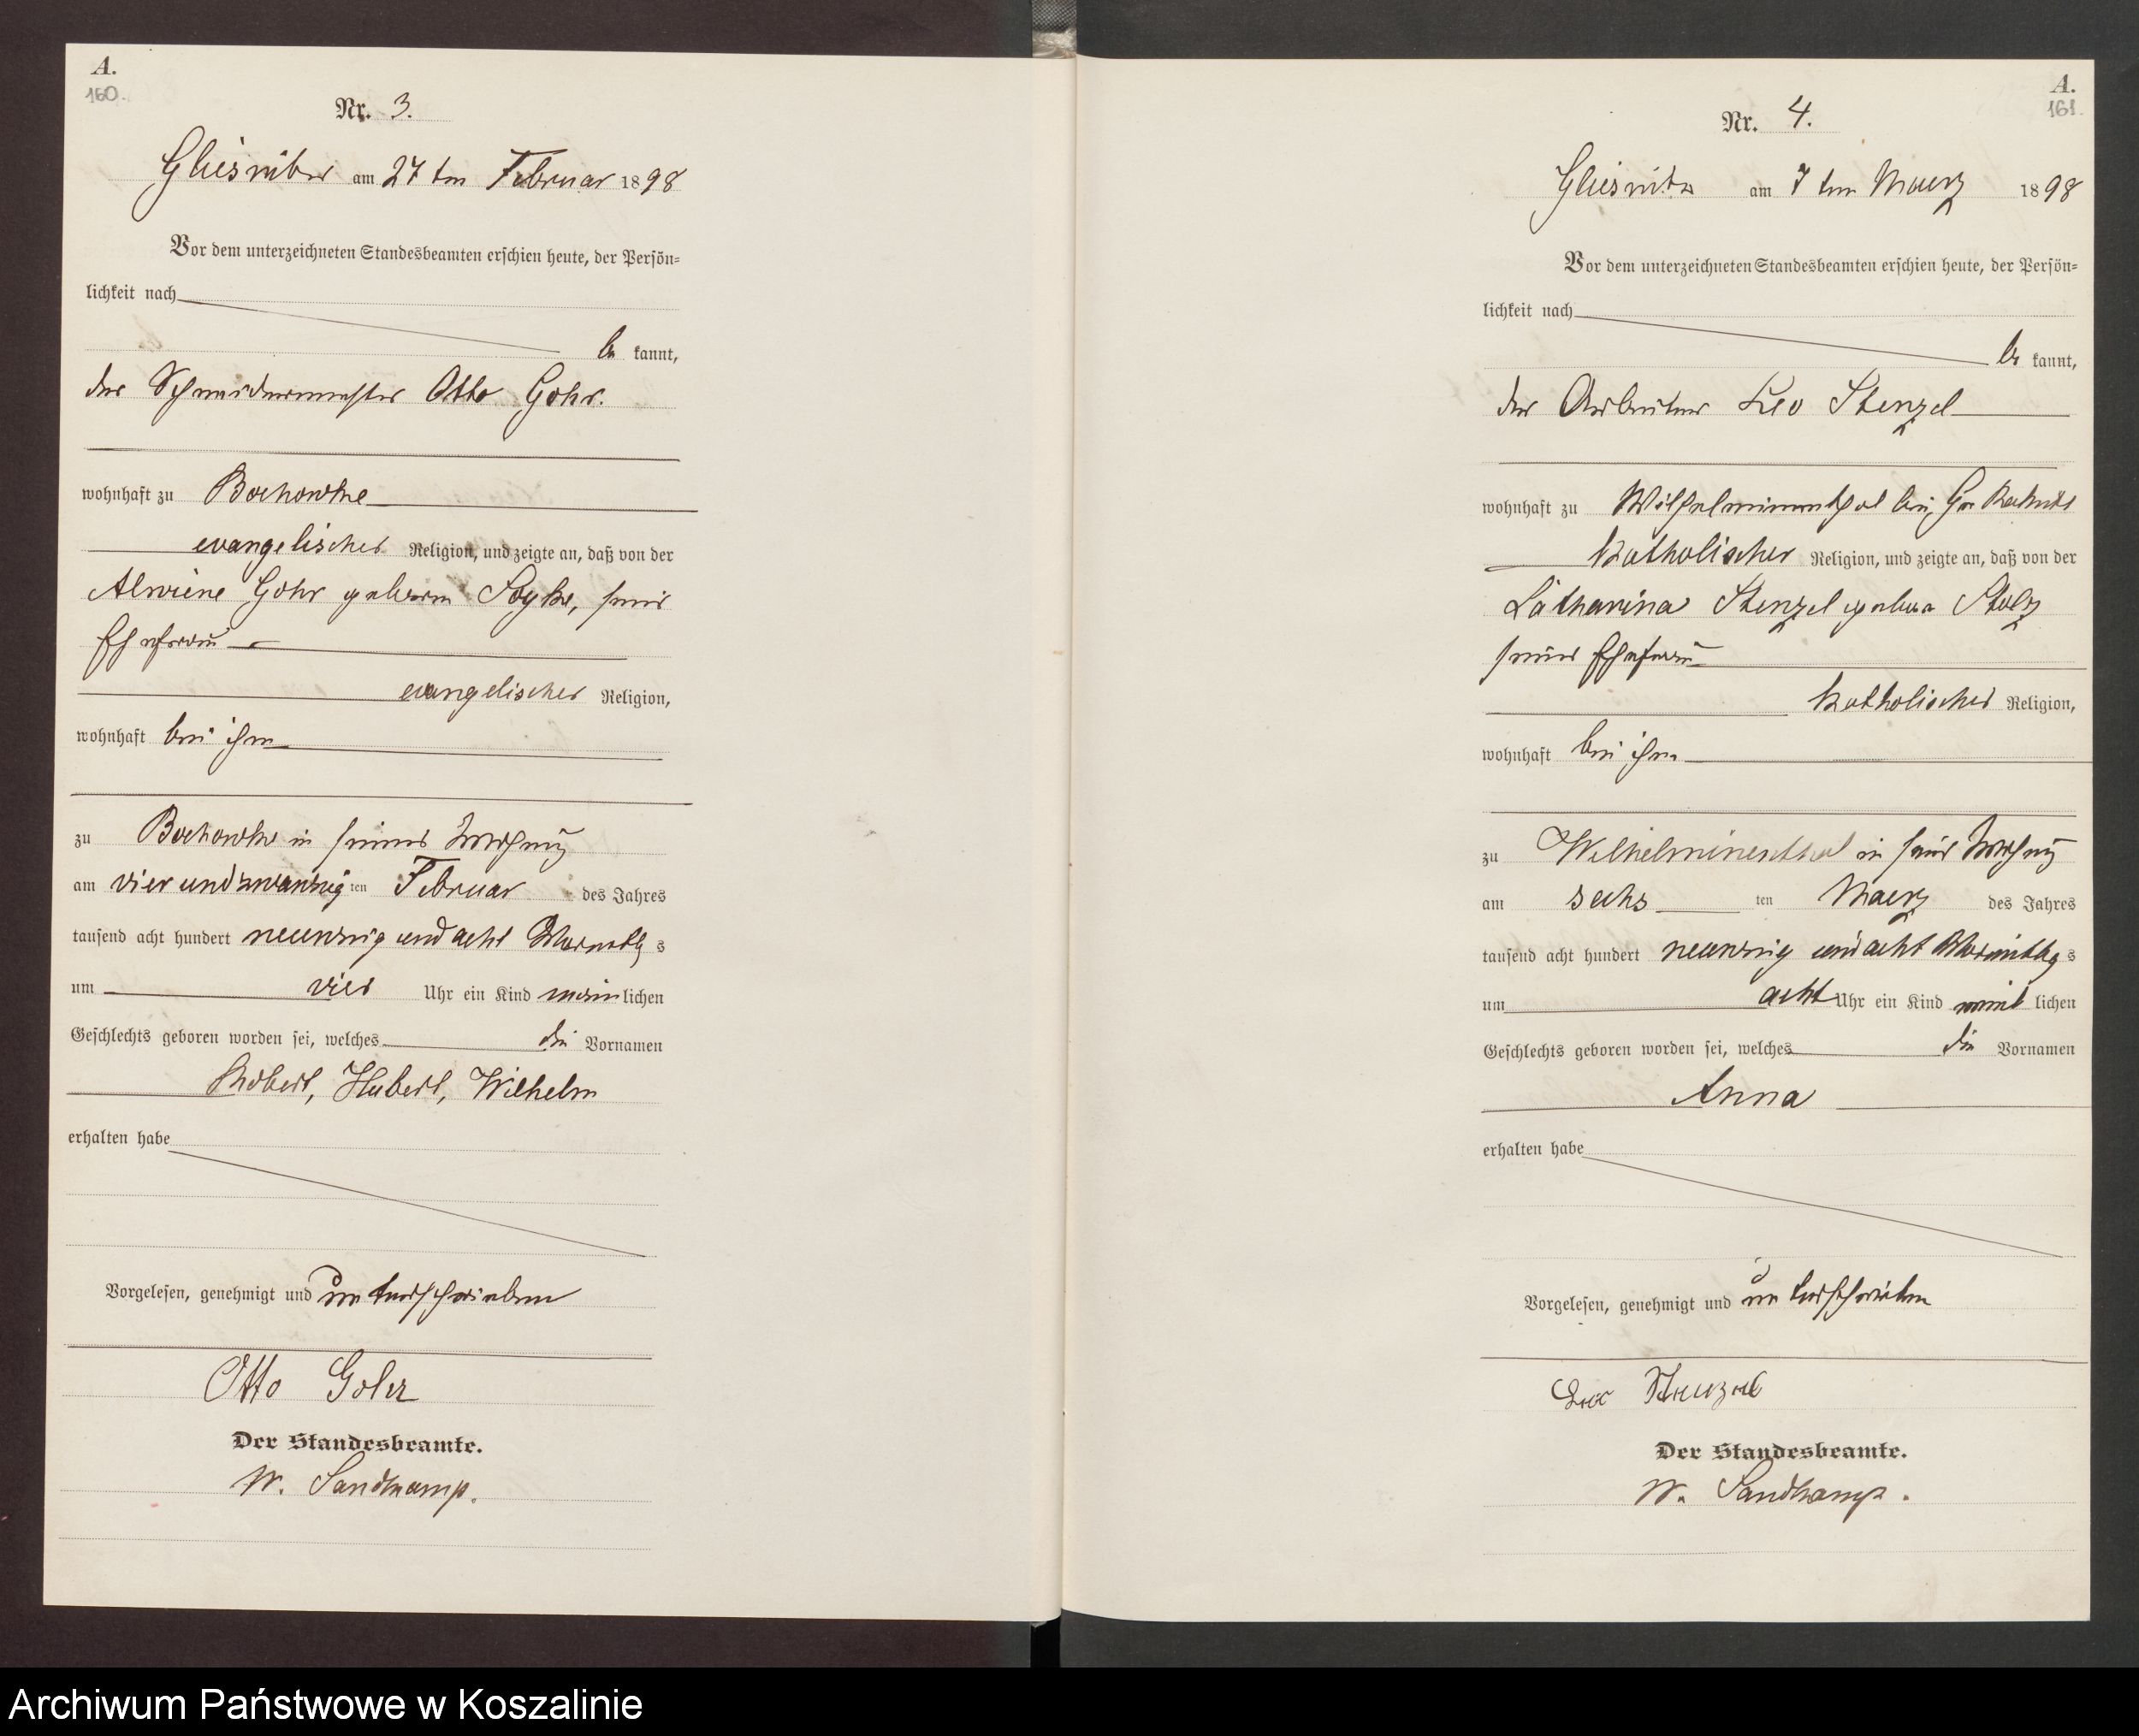 A.
160.
Nr. 3.
Gliesnitz am 27 ten Februar 1898
Vor dem unterzeichneten Standesbeamten erschien heute, der Persön=
lichkeit nach
be kannt,
der Schneidermeister Otto Gohr.
wohnhaft zu Bochowke
evangelischer Religion, und zeigte an, daß von der
Alwine Gohr geborene, seine
Ehefrau
evangelischer Religion,
wohnhaft bei ihm
zu Bochowke in seiner Wohnung
am vier und zwanzig ten Februar des Jahres
tausend acht hundert neunzig und acht Vormittag s
um vier Uhr ein Kind männlichen
Geschlechts geboren worden sei, welches die Vornamen
Robert, Hubert, Wilhelm
erhalten habe
Vorgelesen, genehmigt und unterschrieben
Otto Gohr
Der Standesbeamte.
W. Sandkamp.
A.
161
Nr. 4.
Gliesnitz am 7 ten Maerz 1898
Vor dem unterzeichneten Standesbeamten erschien heute, der Persön=
lichkeit nach
be kannt,
der Arbeiter Leo Stenzel
wohnhaft zu Wilhelminenthal bei Gr Rakitt
katholischer Religion, und zeigte an, daß von der
Katharina Stenzel geborene Stolz
seiner Ehefrau
katholischer Religion,
wohnhaft bei ihm
zu Wilhelminenthal in seiner Wohnung
am sechs ten Maerz des Jahres
tausend acht hundert neunzig und acht Vormittag s
um acht Uhr ein Kind weib lichen
Geschlechts geboren worden sei, welches die Vornamen
Anna
erhalten habe
Vorgelesen, genehmigt und unterschrieben
Leo Stenzel
Der Standesbeamte.
W. Sandkamp.
Archiwum Państwowe w Koszalinie